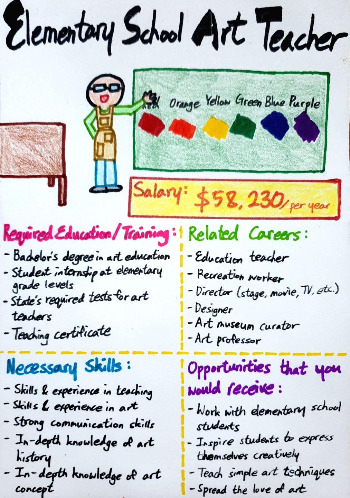 Elementary School Art Teacher
Orange Yellow Green Blue Purple
Salary: $58,230/per year
Required Education/Training:
- Bachelor's degree in art education
- Student internship at elementary
grade levels
- State's required tests for art
teachers
- Teaching certificate
Related Careers:
- Education teacher
- Recreation worker
- Director (stage, movie, TV, etc.)
- Designer
- Art museum curator
- Art professor
Necessary Skills:
- Skills & experience in teaching
- Skills & experience in art
- Strong communication skills
- In-depth knowledge of art
history
- In-depth knowledge of art
concept
Opportunities that you
would receive:
- Work with elementary school
students
- Inspire students to express
themselves creatively
- Teach simple art techniques
- Spread the love of art